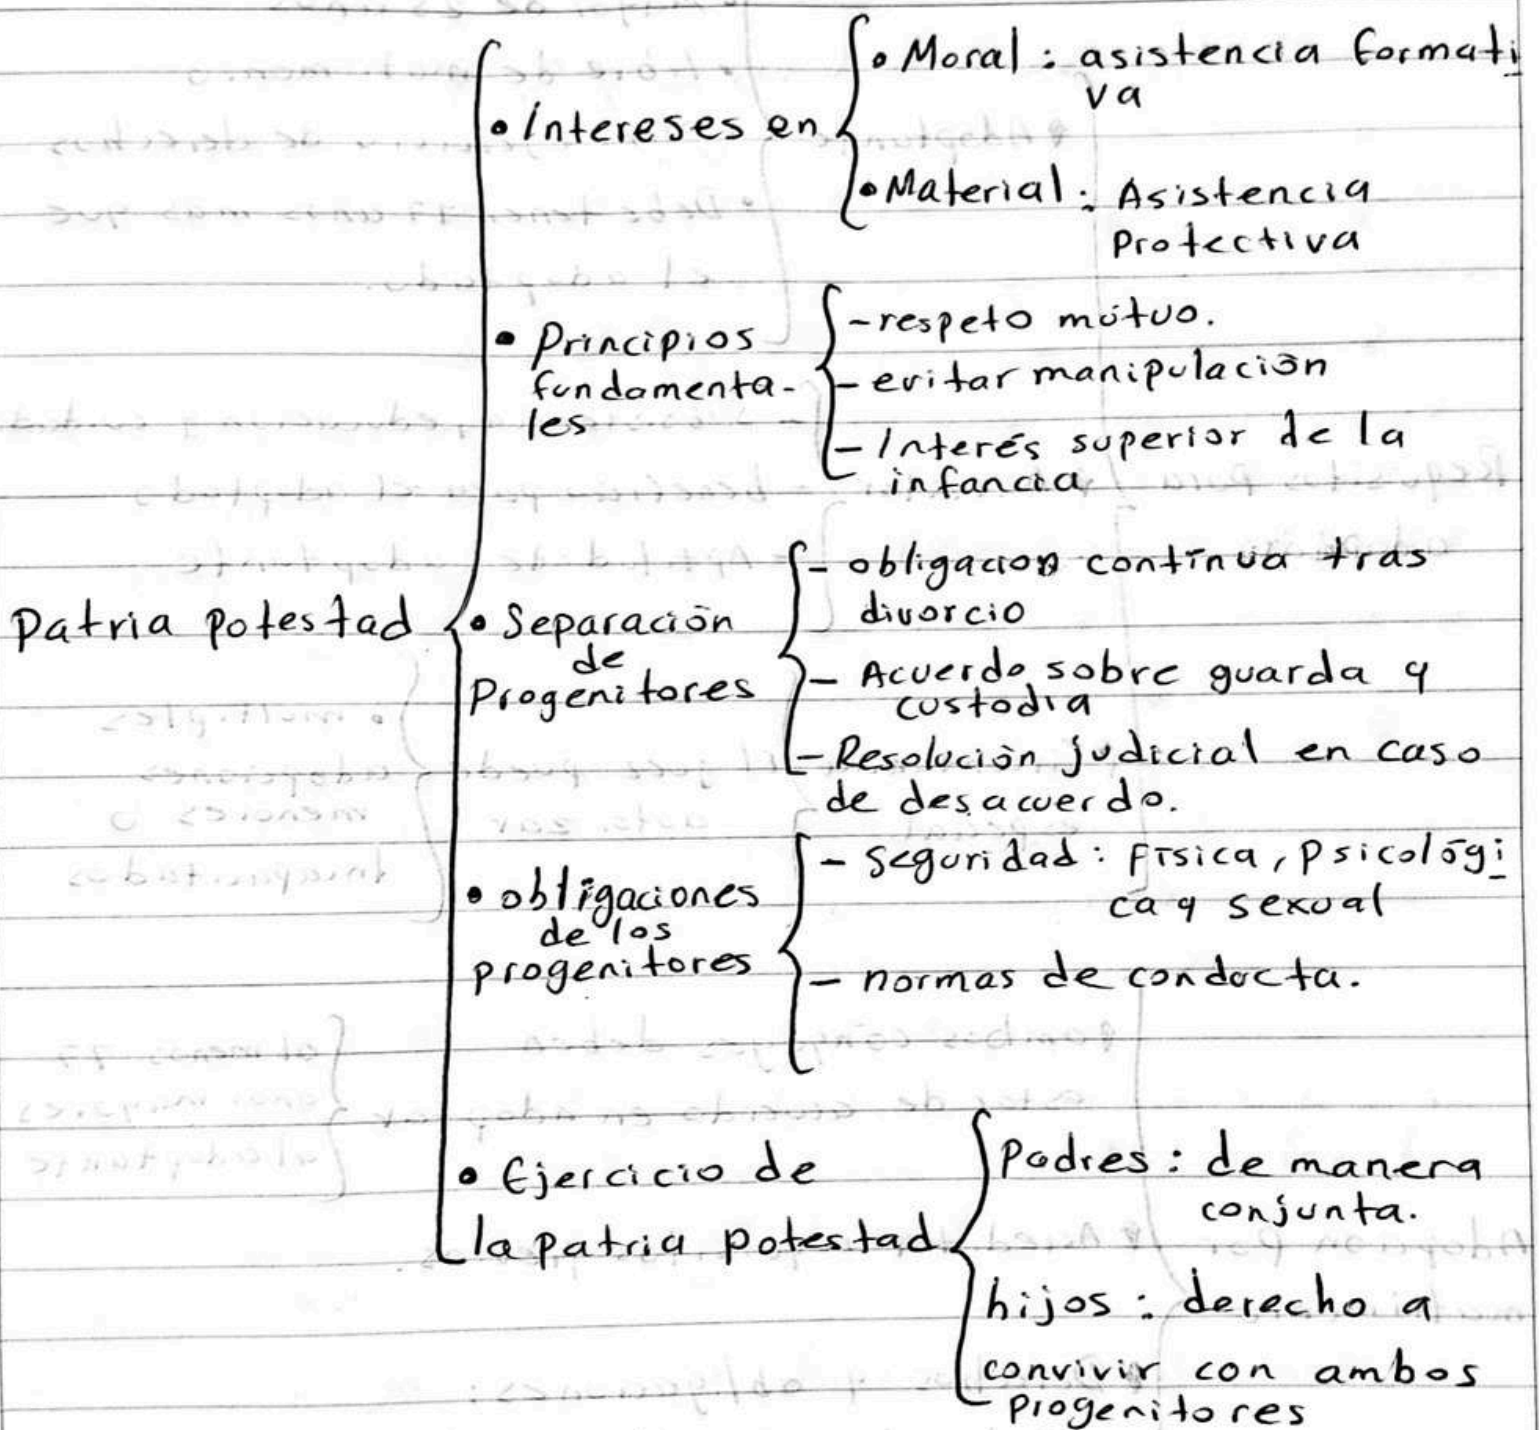 • Moral : asistencia formati
va
• Intereses en
• Material : Asistencia
Protectiva
• Principios
fundamenta-
les
- respeto mútuo.
- evitar manipulación
- Interés superior de la
infancia
Patria potestad
• Separación
de
Progenitores
- obligacion contínua tras
divorcio
- Acuerdo sobre guarda y
custodia
- Resolución judicial en caso
de desacuerdo.
• obligaciones
de los
progenitores
- Seguridad : física, psicológi
ca y sexual
- normas de conducta.
• Ejercicio de
la patria potestad
Padres : de manera
conjunta.
hijos : derecho a
convivir con ambos
progenitores